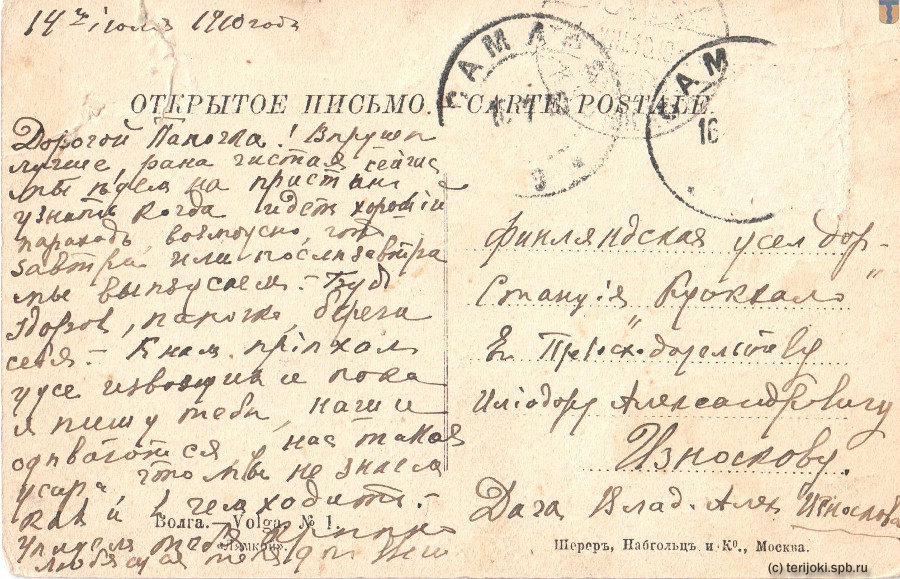 14го іюля 1910 года
САМАРА
16 7 10
САМ
16
ОТКРЫТОЕ ПИСЬМО. — CARTE POSTALE
Дорогой Папочка!
лучше рана чистая сейчас
мы ѣдем на пристань
узнать когда идет хорошій
пароходъ, возможно, что
завтра или послѣзавтра
мы выѣзжаем. – Будь
здоров, папочка, береги
себя. – К нам пріѣхал
уже извозчик и пока
я пишу тебѣ, наши
одѣваются, у нас такая
жара что мы не знаем
как и в чем ходить. –
Цѣлуем тебя крѣпко
любящая тебя
Финляндская жел дор-
Станція "Куоккала"
Ея Превосходительству
Иліодору Александровичу
Износкову.
Дача Влад. Алек Износкова
Волга. — Volga № 1.
«Лямкой».
Шереръ, Набгольцъ и Ко, Москва.
(c) terijoki.spb.ru